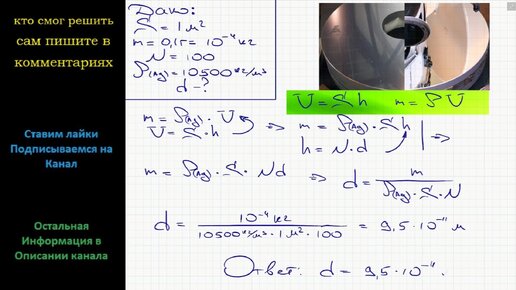 кто смог решить
сам пишите в
комментариях
Ставим лайки
Подписываемся на
Канал
Остальная
Информация в
Описании канала
Дано:
S = 1 м²
m = 0,1г = 10⁻⁴ кг
N = 100
ρ(Ag) = 10500 кг/м³
d - ?
V = S h   m = ρ V
m = ρ(Ag) · V
V = S · h
=> m = ρ(Ag) · S h
h = N · d
=>
m = ρ(Ag) · S · N d => d = m / ρ(Ag) · S · N
d = 10⁻⁴ кг / 10500 кг/м³ · 1 м² · 100 = 9,5 · 10⁻¹¹ м
Ответ: d = 9,5 · 10⁻¹¹.